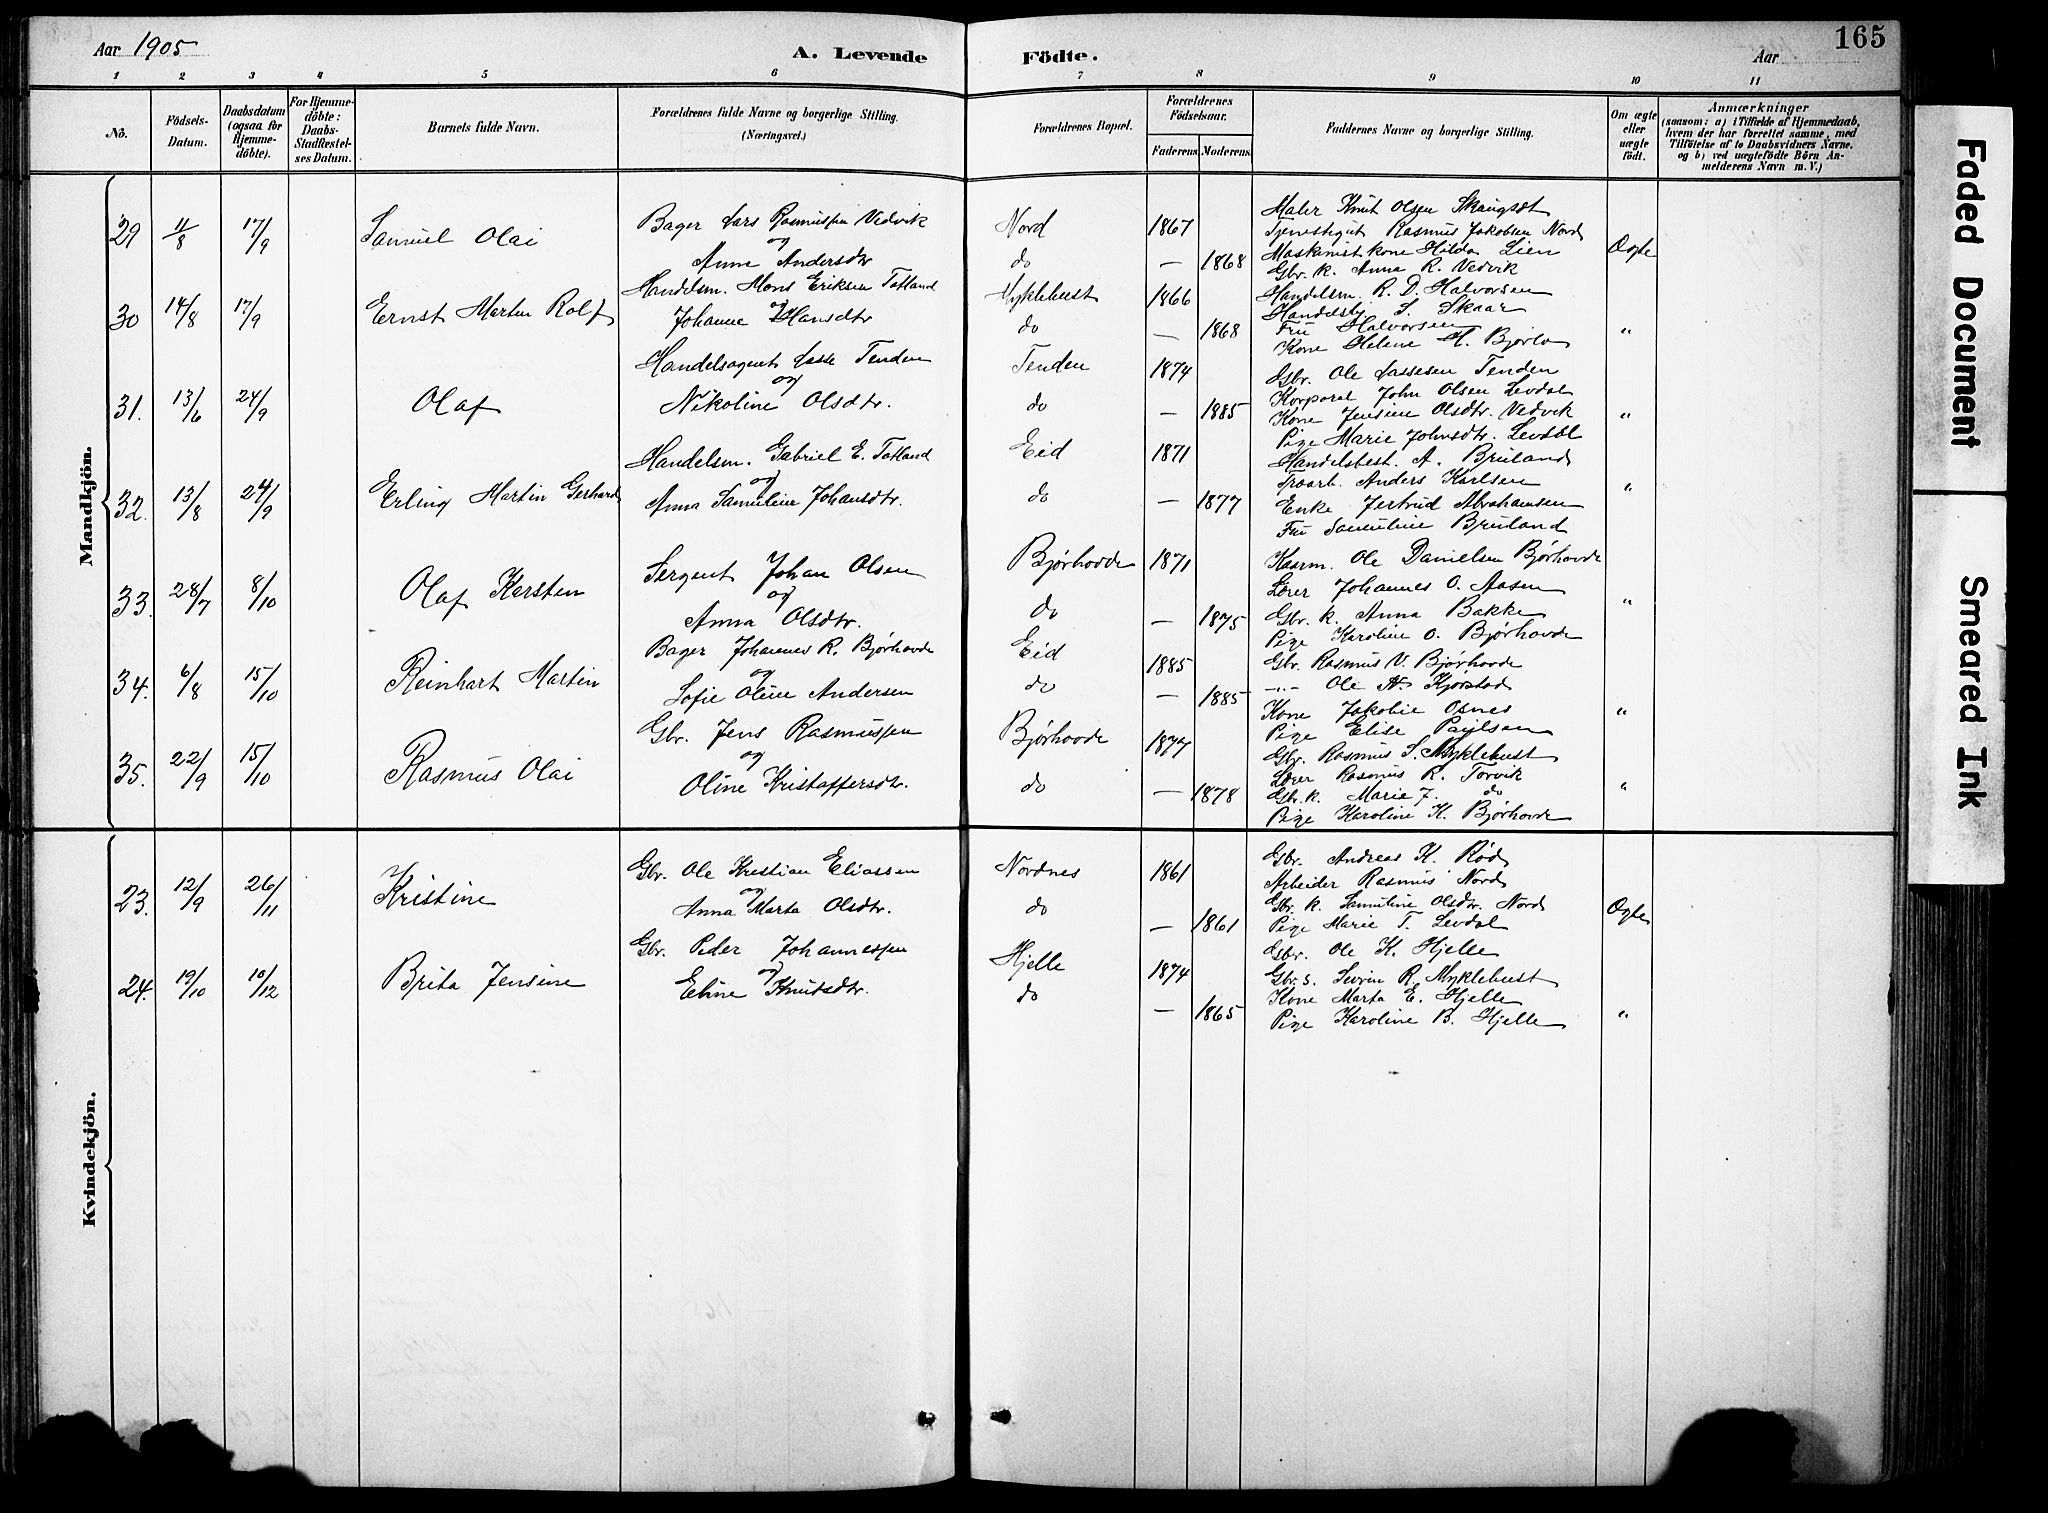 Aar 1905
A. Levende Födte.
165
Aar
1 2 3 4 5 6 7 8 9 10 11
No.
Födsels-Datum.
Daabsdatum (ogsaa for Hjemme-döbte).
For Hjemme-döbte: Daabs-Stadfæstel-ses Datum.
Barnets fulde Navn.
Forældrenes fulde Navne og borgerlige Stilling. (Næringsvei.)
Forældrenes Bopæl.
Forældrenes Födselsaar.
Faderens. Moderens.
Faddernes Navne og borgerlige Stilling.
Om ægte eller uægte født.
Anmærkninger
(saasom: a) i Tilfælde af Hjemmedaab, hvem der har forrettet samme, med Tilföielse af to Daabsvidners Navne. og b) ved uægtefödte Börn Anmelderens Navn m. V.)
Mandkjön.
29 11/8 17/9 Samuel Olai
Bager Lars Rasmussen Vedvik
og
Anne Andersdtr
Nord 1867
do — 1868
Maler Knut Olsen
Tjenestegut Rasmus Jakobsen Nord
Maskinist kone Hilda Lien
Gbr. k. Anna R. Vedvik
Ægte
30 14/8 17/9 Ernst Martin Rolf
Handelsm. Mons Eriksen Totland
og
Johanne Hansdtr
Myklebust 1866
do — 1868
Handelsm. R. D. Halvorsen
Handelsbj. S. Skaar
Fru Halvorsen
Kone Helene H. Bjørlo
"
31. 13/6 24/9 Olaf
Handelsagent Lasse Tenden
og
Nikoline Olsdtr.
Tenden 1874
do — 1885
Gbr. Ole Lassesen Tenden
Korporal John Olsen Levdal
Kone Jensine Olsdtr. Vedvik
Pige Marie Johnsdtr. Levdal
"
32. 13/8 24/9 Erling Martin Gerhard
Handelsm. Gabriel E. Totland
og
Anna Samuline Johansdtr.
Eid 1871
do — 1877
Handelsbest. A. Bruland
Anders Karlsen
Enke Jertrud Abrahamsen
Fru Samuline Bruland
"
33. 28/7 8/10 Olaf Karsten
Sergent Johan Olsen
og
Anna Olsdtr.
Bjørhovde 1871
do — 1875
Kaarm. Ole Danielsen Bjørhovde
Lærer Johannes O. Aasen
Gbr. k. Anna Bakke
Pige Karoline O. Bjørhovde
"
34. 6/8 15/10 Reinhart Martin
Bager Johannes R. Bjørhovde
og
Sofie Oline Andersen
Eid 1885
do — 1885
Gbr. Rasmus V. Bjørhovde
-"- Ole N. Kjørstad
Kone Jakobie Osnes
Pige Elise Paulsen
"
35. 22/9 15/10 Rasmus Olai
Gbr. Jens Rasmussen
og
Oline Kristoffersdtr.
Bjørhovde 1877
do — 1878
Gbr. Rasmus S. Myklebust
Lærer Rasmus R. Torvik
Gbr. k. Marie J. do
Pige Karoline K. Bjørhovde
"
Kvindekjön.
23. 12/9 26/11 Kristine
Gbr. Ole Kristian Eliassen
og
Anna Marta Olsdtr.
Nordnes 1861
do — 1861
Gbr. Andreas K. Rød
Arbeider Rasmus Nord
Gbr. k. Samuline Olsdtr. Nord
Pige Marie T. Levdal
Ægte
24. 19/10 10/12 Brita Jensine
Gbr. Peder Johannessen
og
Eline Knutsdtr.
Hjelle 1874
do — 1865
Gbr. Ole K. Hjelle
Gbr. s. Severin R. Myklebust
Kone Marta E. Hjelle
Pige Karoline B. Hjelle
"
Faded Document
Smeared Ink